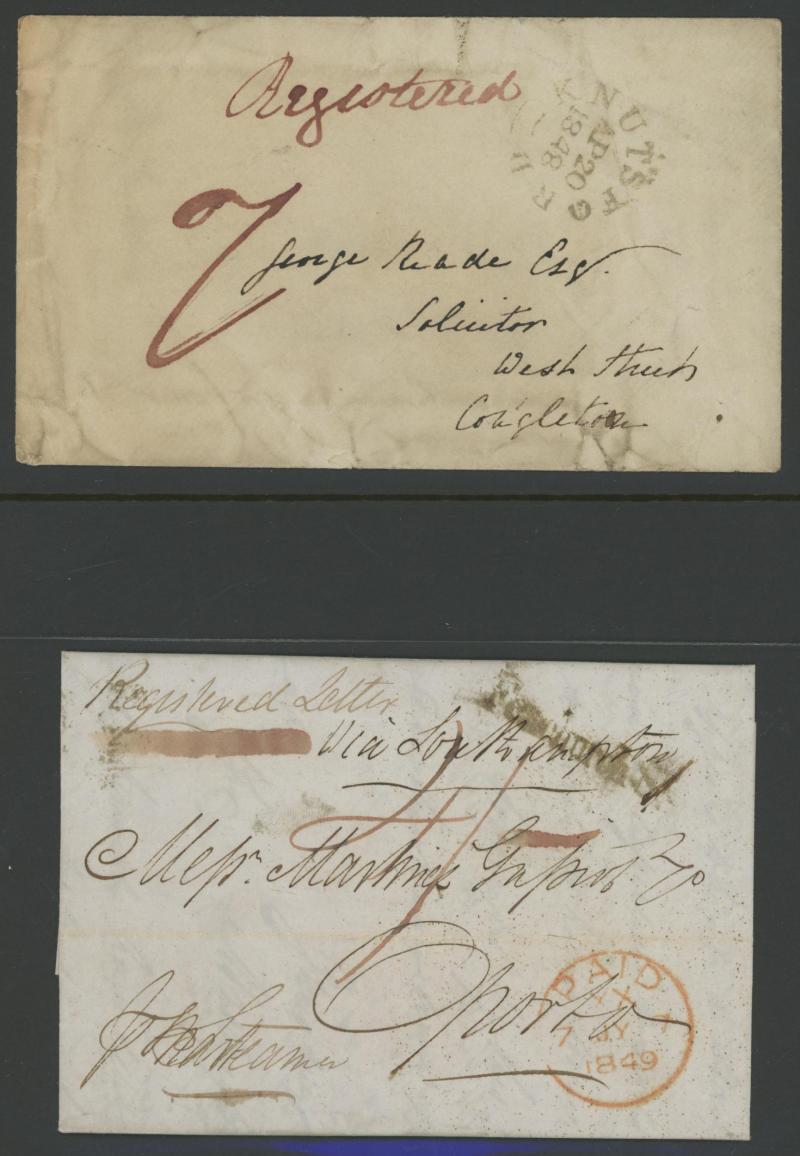 Registered
KNUTSFORD
AP 20
1848
7
George Reade Esqr.
Solicitor
West Street
Congleton
Registered Letter
Via Southampton
Messrs. Martinez Gassiot & Co
Oporto
PAID
7 JY 7
1849